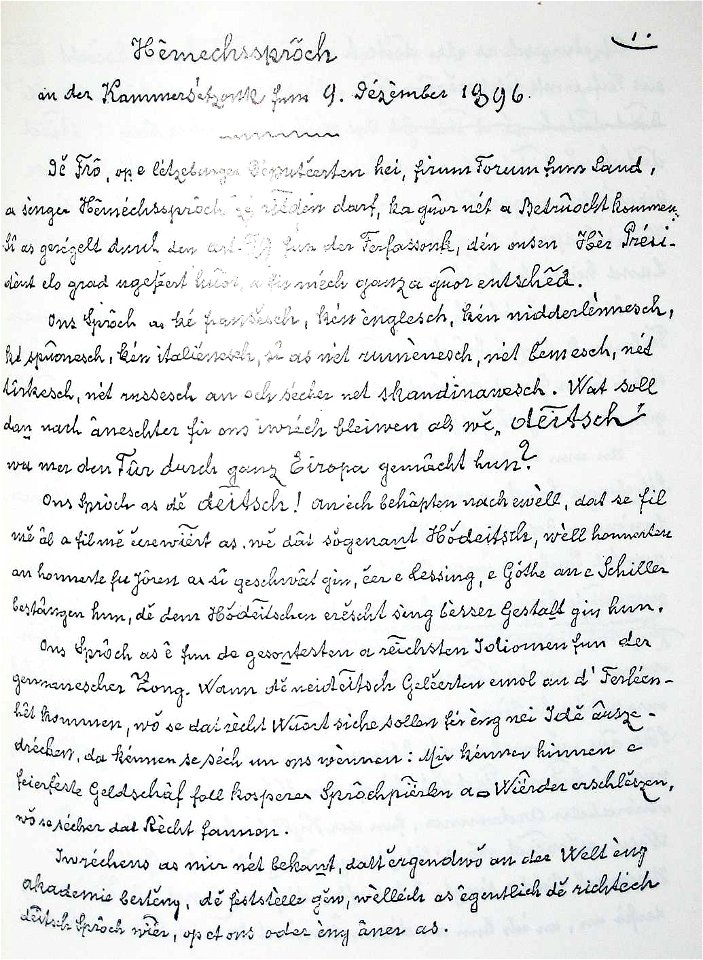 1.
Hêmechssprôch
an der Kammersétzonk fum 9. Dézèmber 1896.
Dě Frô, op e lètzeburger Députéerten hei, firum Forum fum Land,
a sènger Hêméchssprôch ze riėden darf, ka guor nét a Betruocht kommen.
Sî as gerégelt durch den art. fun der Ferfassonk, dén onsen Hèr Prési-
dènt elo grad ugefeert huot, a fir mech ganz a guor entschêd.
Ons Sprôch as ké franséisch, kén ènglesch, kén nidderlènnesch,
ké spuonesch, kén italiènesch, sî as nét rumènesch, nét bêmesch, nét
tirkesch, nét russesch an och sécher net skandinawesch. Wat soll
dan nach âneschter fir ons iwréch bleiwen als wě „deitsch"
wu mer den Tûr durch ganz Eiropa gemâcht hun?
Ons Sprôch as dě deitsch! an éch behâpten nach ewèll, dat se fil
mě âl a fil mě éerewiért as wě dât sôgenant Hôdeitsch, wèll honnerten
an honnerte fu Jôren as sî geschwât gin, éer e Lessing, e Göthe an e Schiller
bestângen hun, dě dem Hôdeitschen erěscht sèng bèsser Gestalt gin hun.
Ons Sprôch as ê fun de gesontesten a reichsten Idiomen fun der
germanescher Zong. Wann dě neideitsch Geléerten emol an d' Ferléen-
hêt kommen, wô se dat rècht Wuort siche sollen fir èng nei Idê âusze-
drécken, da kénnen se séch un ons wènnen: Mir kénnen hinnen e
feierfèste Geldschâf foll kosperer Sprôchpièrlen a Wiérder erschlěszen,
wô se sécher dat Rècht fannen.
Iwréchens as mir nét bekant, datt ergendwô an der Welt èng
akademie bestěng, dě feststelle gěw, wèlléch as êgentlich dě richtéch
deitsch Sprôch wiér, op et ons oder èng âner as.